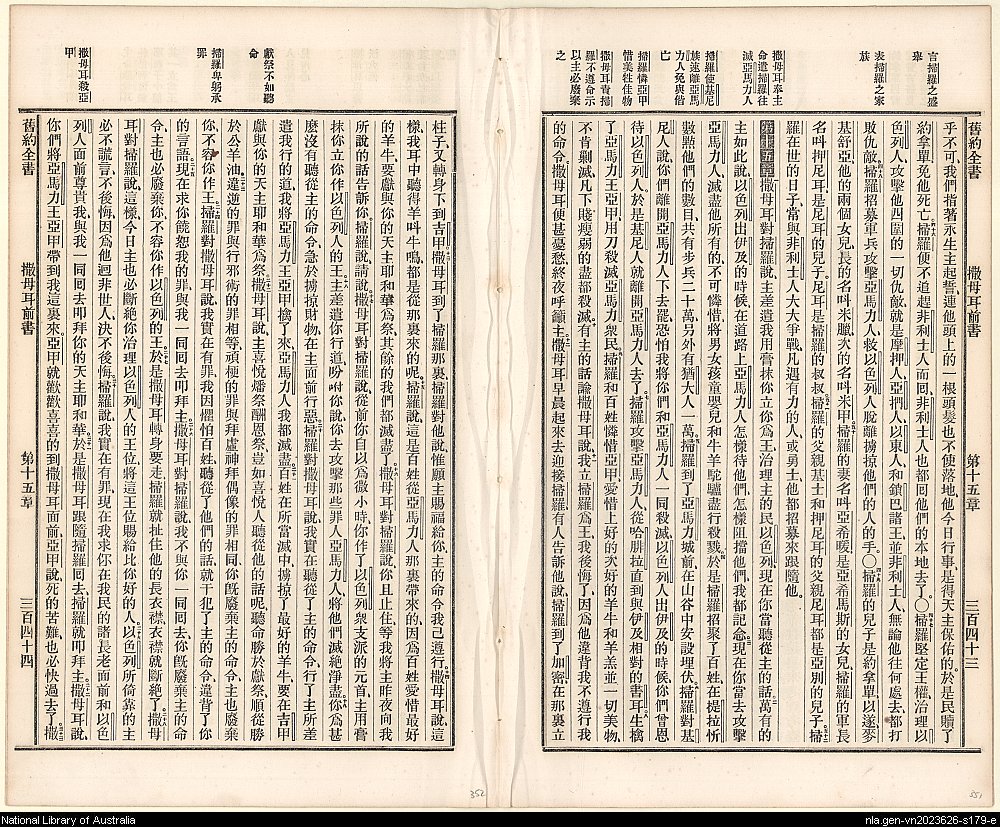 言掃羅之盛
舉
表掃羅之家
族
撒母耳奉主
命遣掃羅往
滅亞馬力人
掃羅使基尼
族遠離亞馬
力人免與偕
亡
掃羅憐亞甲
惜美牲佳物
撒母耳責掃
羅不遵命示
以主必廢棄
之
舊約全書 撒母耳前書 第十五章 三百四十三
乎不可我們指著永生主起誓連他頭上的一根頭髮也不使落地他今日行事是得天主保佑的於是民贖了
約拿單免他死亡掃羅便不追趕非利士人而回非利士人也都回他們的本地去了〇掃羅堅定王權治理以
色列人攻擊他四圍的一切仇敵就是摩押人亞捫人以東人和鎖巴諸王並非利士人無論他往何處去都打
敗仇敵掃羅招募軍兵攻擊亞馬力人救以色列人脫離擄掠他們的人的手〇掃羅的兒子是約拿單以遂麥
基舒亞他的兩個女兒長的名叫米臘次的名叫米甲掃羅的妻名叫亞希暖是亞希馬斯的女兒掃羅的軍長
名叫押尼耳是尼耳的兒子尼耳是掃羅的叔叔掃羅的父親基士和押尼耳的父親尼耳都是亞別的兒子掃
羅在世的日子當與非利士人大大爭戰凡遇有力的人或勇士他都招募來跟隨他
第十五章撒母耳對掃羅說主差遣我用膏抹你立你為王治理主的民以色列現在你當聽從主的話萬有的
主如此說以色列出伊及的時候在道路上亞馬力人怎樣待他們怎樣阻擋他們我都記念現在你當去攻擊
亞馬力人滅盡他所有的不可憐惜將男女孩童嬰兒和牛羊駝驢盡行殺戮於是掃羅招聚了百姓在提拉忻
數點他們的數目共有步兵二十萬另外有猶大人一萬掃羅到了亞馬力城前在山谷中安設埋伏掃羅對基
尼人說你們離開亞馬力人下去罷恐怕我將你們和亞馬力人一同殺滅以色列人出伊及的時候你們曾恩
待以色列人於是基尼人就離開亞馬力人去了掃羅攻擊亞馬力人從哈腓拉直到與伊及相對的書耳生擒
了亞馬力王亞甲用刀殺滅亞馬力衆民掃羅和百姓憐惜亞甲愛惜上好的次好的牛羊和羊羔並一切美物
不肯剿滅凡下賤瘦弱的盡都殺滅有主的話諭撒母耳說我立掃羅為王我後悔了因為他違背我不遵行我
的命令撒母耳便甚憂愁終夜呼籲主撒母耳早晨起來去迎接掃羅有人告訴他說掃羅到了加密在那裏立
獻祭不如聽
命
掃羅卑躬承
罪
撒母耳殺亞
甲
柱子又轉身下到吉甲撒母耳到了掃羅那裏掃羅對他說惟願主賜福給你主的命令我已遵行撒母耳說這
樣我耳中聽得羊叫牛鳴都是從那裏來的呢掃羅說這是百姓從亞馬力人那裏帶來的因為百姓愛惜最好
的羊牛要獻與你的天主耶和華為祭其餘的我們都滅盡了撒母耳對掃羅說你且止住等我將主昨夜向我
所說的話告訴你掃羅說請說撒母耳對掃羅說從前你自以為微小時你作了以色列衆支派的元首主用膏
抹你立你作以色列人的王主差遣你行道吩咐你說你去攻擊那些罪人亞馬力人將他們滅絕淨盡你為甚
麼沒有聽從主的命令急於擄掠財物在主面前行惡掃羅對撒母耳說我實在聽從了主的命令行了主所差
遣我行的道我將亞馬力王亞甲擒了來亞馬力人我都滅盡百姓在所當滅中擄掠了最好的羊牛要在吉甲
獻與你的天主耶和華為祭撒母耳說主喜悅燔祭酬恩祭豈如喜悅人聽從他的話呢聽命勝於獻祭順從勝
於公羊油違逆的罪與行邪術的罪相等頑梗的罪與拜虛神拜偶像的罪相同你旣廢棄主的命令主也廢棄
你不容你作王掃羅對撒母耳說我實在有罪我因懼怕百姓聽從了他們的話就干犯了主的命令違背了你
的言語現在求你饒恕我的罪與我一同回去叩拜主撒母耳對掃羅說我不與你一同回去你旣廢棄主的命
令主也必廢棄你不容你作以色列的王於是撒母耳轉身要走掃羅就扯住他的長衣襟衣襟就斷絕了撒母
耳對掃羅說這樣今日主也必斷絕你治理以色列人的王位將這王位賜給比你好的人以色列所倚靠的主
必不謊言不後悔因為他迥非世人決不後悔掃羅說我實在有罪現在我求你在我民的諸長老面前和以色
列人面前尊貴我與我一同回去叩拜你的天主耶和華於是撒母耳跟隨掃羅回去掃羅就叩拜主撒母耳說
你們將亞馬力王亞甲帶到我這裏來亞甲就歡歡喜喜的到撒母耳面前亞甲說死的苦難也必快過去了撒
舊約全書 撒母耳前書 第十五章 三百四十四
352
351
National Library of Australia
nla.gen-vn2023626-s179-e